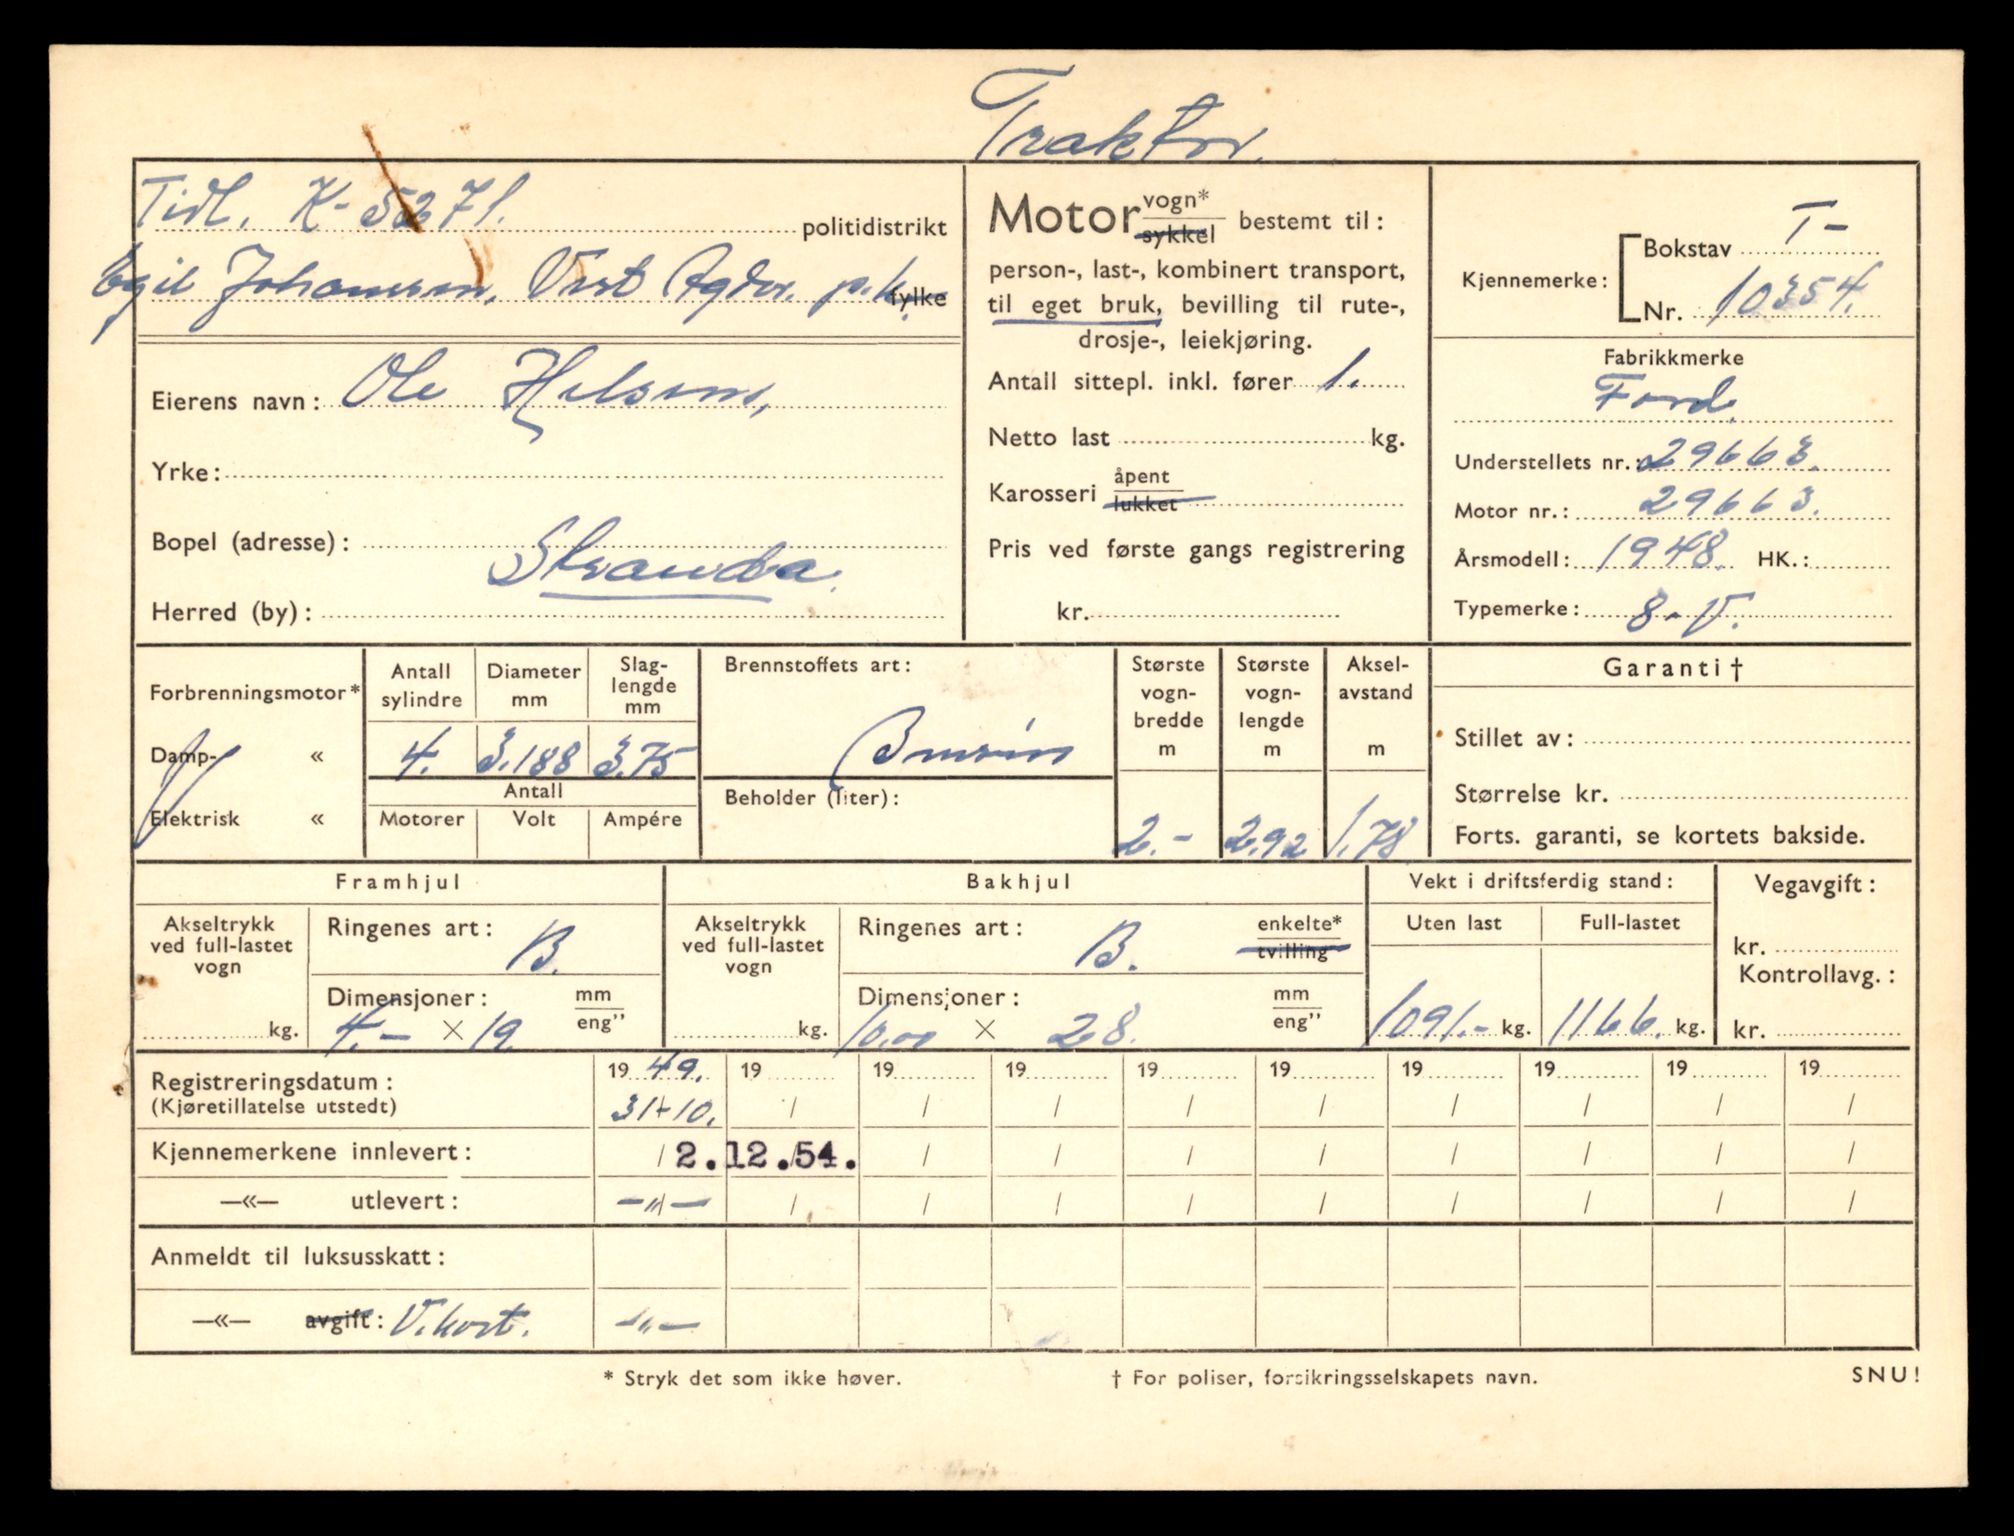 Traktor.
Tidl. K-5271. politidistrikt
Egil Johannesen, Vest Agder. p.k. fylke
Eierens navn: Ole
Yrke:
Bopel (adresse):
Stranda.
Herred (by):
Motor vogn* sykkel bestemt til:
person-, last-, kombinert transport,
til eget bruk, bevilling til rute-,
drosje-, leiekjøring.
Antall sittepl. inkl. fører 1.
Netto last kg.
Karosseri åpent lukket
Pris ved første gangs registrering
kr.
Kjennemerke: Bokstav T-
Nr. 10354.
Fabrikkmerke
Ford.
Understellets nr.: 29663.
Motor nr.: 29663.
Årsmodell: 1948. HK.:
Typemerke: 8-V.
Forbrenningsmotor*
Damp- «
Elektrisk «
Antall sylindre Diameter mm Slag-lengde mm
4. 3.188 3.75
Antall
Motorer Volt Ampére
Brennstoffets art:
Bensin
Beholder (liter):
Største vogn-bredde m Største vogn-lengde m Aksel-avstand m
2.- 2.92 1.78
Garanti †
Stillet av:
Størrelse kr.
Forts. garanti, se kortets bakside.
Framhjul
Akseltrykk ved full-lastet vogn
kg.
Ringenes art: B.
Dimensjoner: mm eng"
4.- × 19.
Bakhjul
Akseltrykk ved full-lastet vogn
kg.
Ringenes art: B. enkelte* tvilling
Dimensjoner: mm eng"
10.00 × 28.
Vekt i driftsferdig stand:
Uten last Full-lastet
1091.- kg. 1166. kg.
Vegavgift:
kr.
Kontrollavg.:
kr.
Registreringsdatum: 1949. 19 19 19 19 19 19 19 19 19
(Kjøretillatelse utstedt) 31/10. / / / / / / / / /
Kjennemerkene innlevert: / 2.12./54. / / / / / / / /
—«— utlevert: —"— / / / / / / / / /
Anmeldt til luksusskatt:
—«— avgift: V.kort. —"—
* Stryk det som ikke høver. † For poliser, forsikringsselskapets navn. SNU!